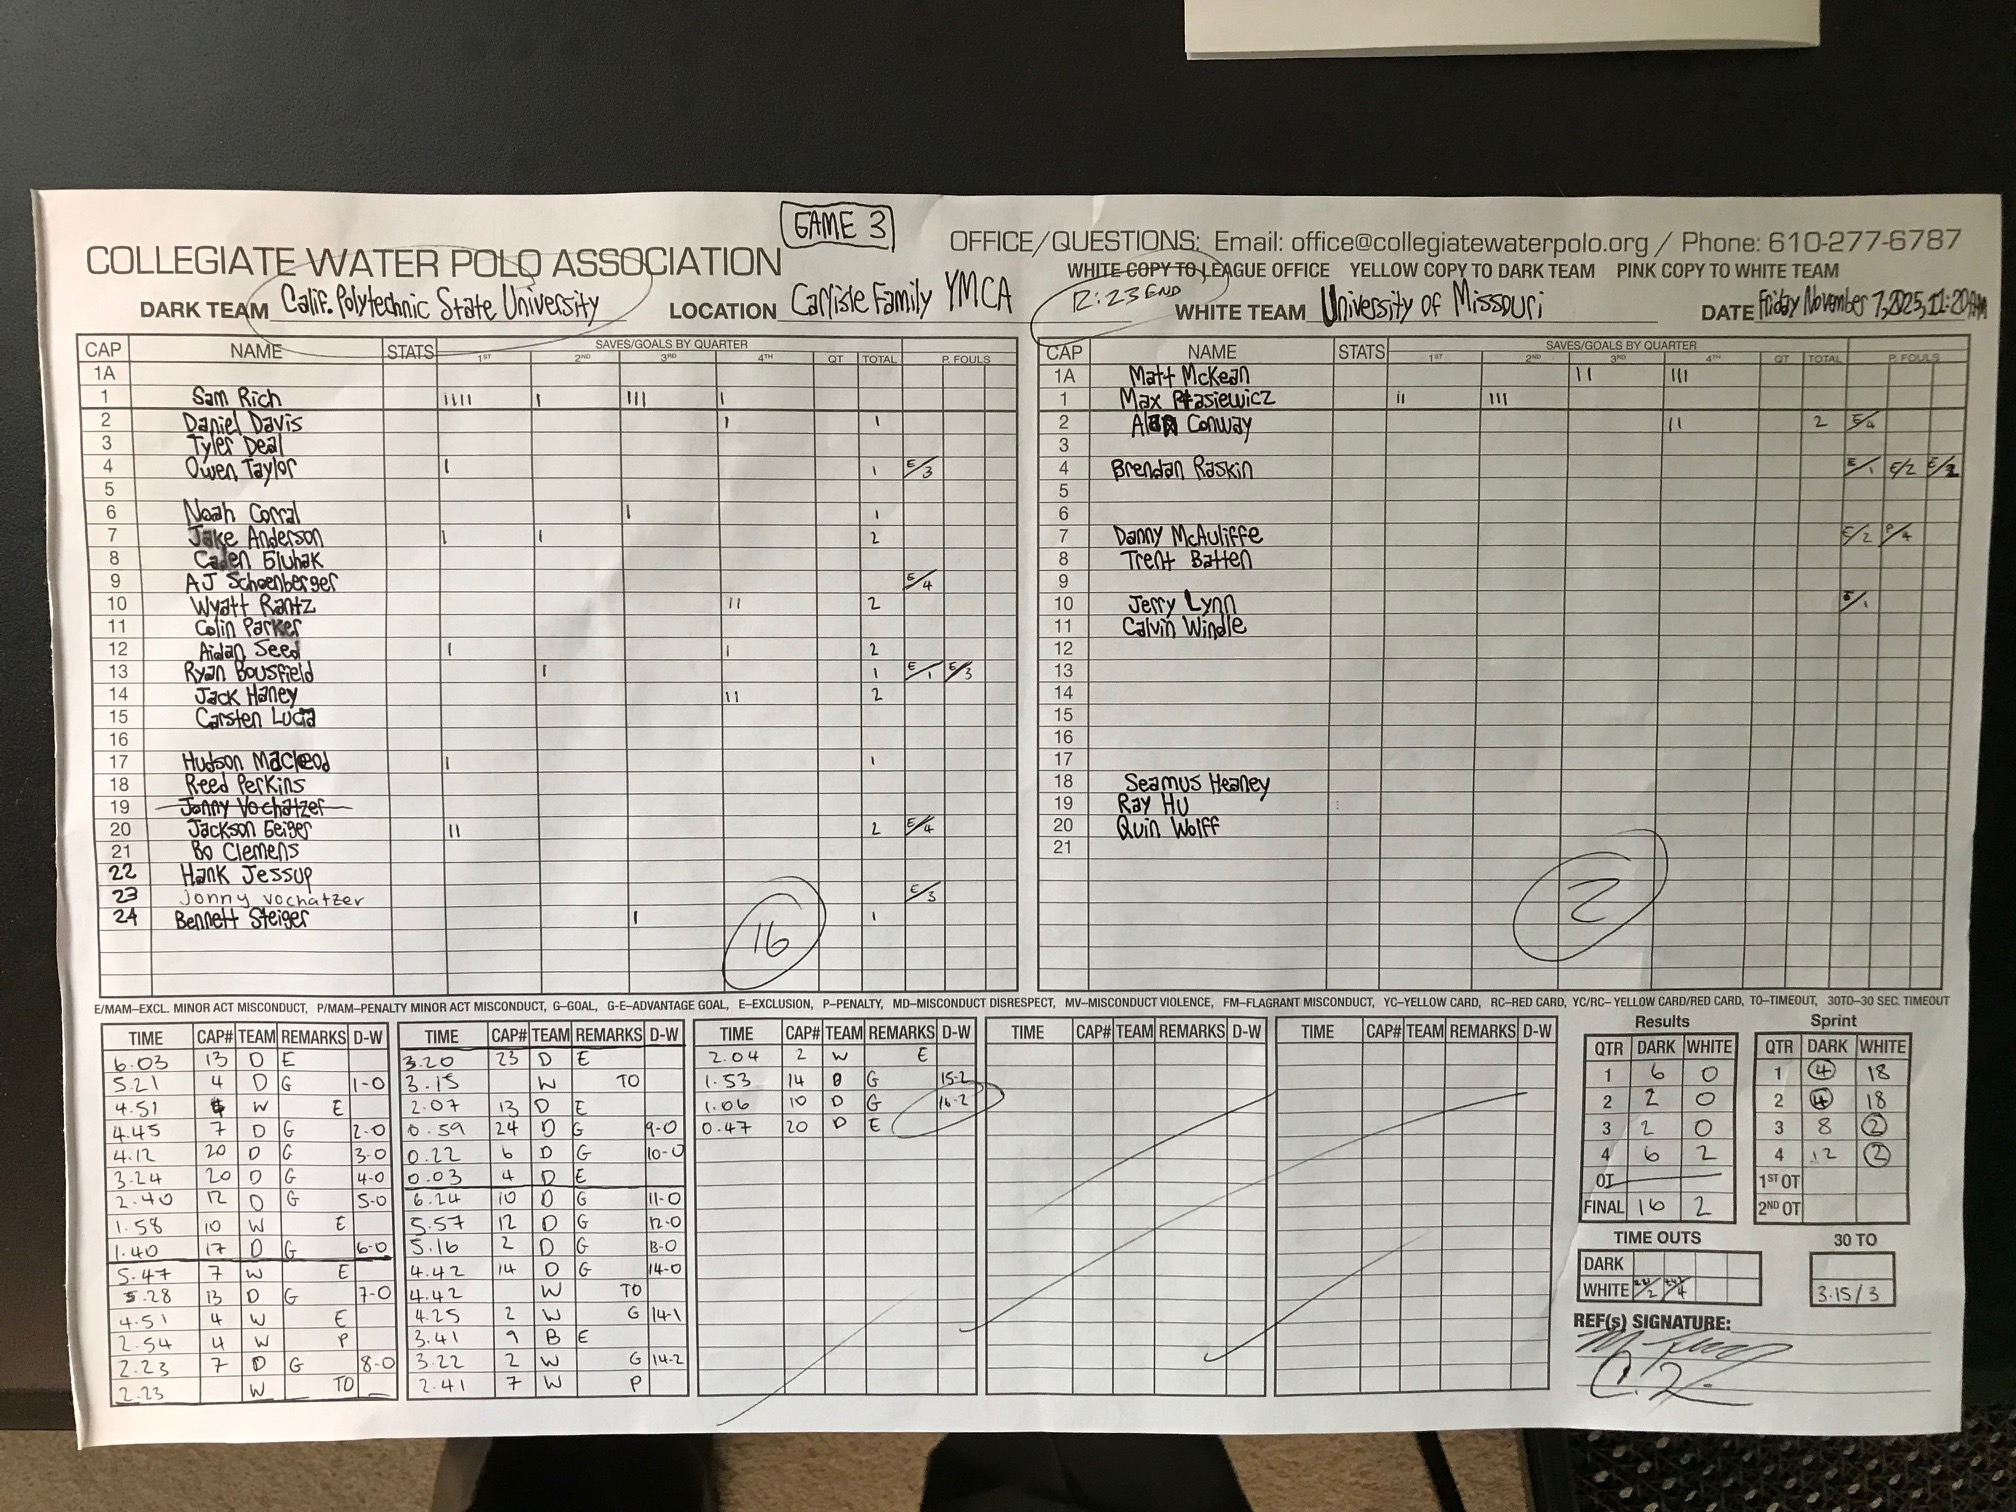 GAME 3
COLLEGIATE WATER POLO ASSOCIATION
OFFICE/QUESTIONS: Email: office@collegiatewaterpolo.org / Phone: 610-277-6787
WHITE COPY TO LEAGUE OFFICE YELLOW COPY TO DARK TEAM PINK COPY TO WHITE TEAM
12:23 END
DARK TEAM Calif. Polytechnic State University LOCATION Carlisle Family YMCA WHITE TEAM University of Missouri DATE Friday November 7, 2025, 11:20AM
CAP NAME STATS SAVES/GOALS BY QUARTER
1ST 2ND 3RD 4TH QT TOTAL P. FOULS
1A
1 Sam Rich IIII I III I
2 Daniel Davis I 1
3 Tyler Deal
4 Owen Taylor I 1 E/3
5
6 Noah Corral I 1
7 Jake Anderson I I 2
8 Caden Gluhak
9 AJ Schoenberger E/4
10 Wyatt Rantz II 2
11 Colin Parker
12 Aidan Seed I I 2
13 Ryan Bousfield I 1 E/1 E/3
14 Jack Haney II 2
15 Carsten Lucia
16
17 Hudson Macleod I 1
18 Reed Perkins
19 Jonny Vochatzer
20 Jackson Geiger II 2 E/4
21 Bo Clemens
22 Hank Jessup
23 Jonny Vochatzer E/3
24 Bennett Steiger I 1
16
CAP NAME STATS SAVES/GOALS BY QUARTER
1ST 2ND 3RD 4TH QT TOTAL P. FOULS
1A Matt McKean II III
1 Max Ptasiewicz II III
2 Conway II 2 E/4
3
4 Brendan Raskin E/1 E/2 E/2
5
6
7 Danny McAuliffe E/2 P/4
8 Trent Batten
9
10 Jerry Lynn E/1
11 Calvin Windle
12
13
14
15
16
17
18 Seamus Heaney
19 Ray Hu
20 Quin Wolff
21
2
E/MAM–EXCL. MINOR ACT MISCONDUCT, P/MAM–PENALTY MINOR ACT MISCONDUCT, G–GOAL, G-E–ADVANTAGE GOAL, E–EXCLUSION, P–PENALTY, MD–MISCONDUCT DISRESPECT, MV–MISCONDUCT VIOLENCE, FM–FLAGRANT MISCONDUCT, YC–YELLOW CARD, RC–RED CARD, YC/RC– YELLOW CARD/RED CARD, TO–TIMEOUT, 30TO–30 SEC. TIMEOUT
TIME CAP# TEAM REMARKS D-W
6.03 13 D E
5.21 4 D G 1-0
4.51 W E
4.45 7 D G 2-0
4.12 20 D G 3-0
3.24 20 D G 4-0
2.40 12 D G 5-0
1.58 10 W E
1.40 17 D G 6-0
5.47 7 W E
5.28 13 D G 7-0
4.51 4 W E
2.54 4 W P
2.23 7 D G 8-0
2.23 W TO
TIME CAP# TEAM REMARKS D-W
3.20 23 D E
3.15 W TO
2.07 13 D E
0.59 24 D G 9-0
0.22 6 D G 10-0
0.03 4 D E
6.24 10 D G 11-0
5.57 12 D G 12-0
5.16 2 D G 13-0
4.42 14 D G 14-0
4.42 W TO
4.25 2 W G 14-1
3.41 9 B E
3.22 2 W G 14-2
2.41 7 W P
TIME CAP# TEAM REMARKS D-W
2.04 2 W E
1.53 14 D G 15-2
1.06 10 D G 16-2
0.47 20 D E
TIME CAP# TEAM REMARKS D-W
TIME CAP# TEAM REMARKS D-W
Results
QTR DARK WHITE
1 6 0
2 2 0
3 2 0
4 6 2
OT
FINAL 16 2
Sprint
QTR DARK WHITE
1 4 18
2 4 18
3 8 2
4 12 2
1ST OT
2ND OT
TIME OUTS
DARK
WHITE
30 TO
3.15/3
REF(s) SIGNATURE: